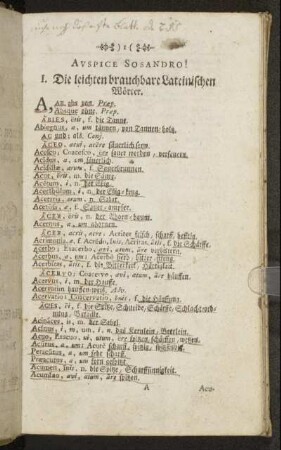 1
AVSPICE SOSANDRO!
I. Die leichten brauchbare Lateinischen
Wörter.
A, AB, ohn von. Præp.
Absque ohne. Præp.
ABIES, ētis, f. die Tanne.
Abiegnus, a, um tännen, von Tannen-holtz.
AC und; als. Conj.
ACEO, acui, acēre säuerlich seyn.
Acesco, Coacesco, ĕre sauer werden, versauern.
Acidus, a, um säuerlich.
Acidulæ, arum, f. Saurbrunnen.
Acor, ōris, m. die Säure.
Acētum, i, n. der Essig.
Acetabulum, i, n. der Essig-krug.
Acetaria, arum, n. Salat.
Acetosa, æ, f. Sauer-ampfer.
ACER, ĕris, n. der Ahorn-baum.
Acernus, a, um von ahornen.
ACER, acris, acre; Acriter frisch, scharff, hefftig.
Acrimonia, æ, f. Acredo, ĭnis, Acritas, ātis, f. die Schärffe.
Acerbo; Exacerbo, avi, atum, āre erbittern.
Acerbus, a, um; Acerbè herb, bitter, streng.
Acerbitas, ātis, f. die Bitterkeit, Hertigkeit.
ACERVO; Coacervo, avi, atum, āre häuffen.
Acervus, i, m. der Hauffe.
Acervatim hauffen-weis. Adv.
Acervatio; Coacervatio, ōnis, f. die Häuffung.
ACIES, ēi, f. die Spitze, Schneide, Schärffe, Schlachtordnung, Bataille.
Acinaces, is, m. der Sabel.
Acinus, i, m. um, i, n. das Kernlein, Beerlein.
Acuo, Exacuo, ui, utum, ĕre spitzen, schärffen, wetzen.
Acutus, a, um; Acutè scharff, spitzig, spitzfündig.
Peracutus, a, um sehr scharff.
Præacutus, a, um forn gespitzt.
Acumen, ĭnis, n. die Spitze, Scharffsinnigkeit.
Acumino, avi, atum, āre spitzen.
A